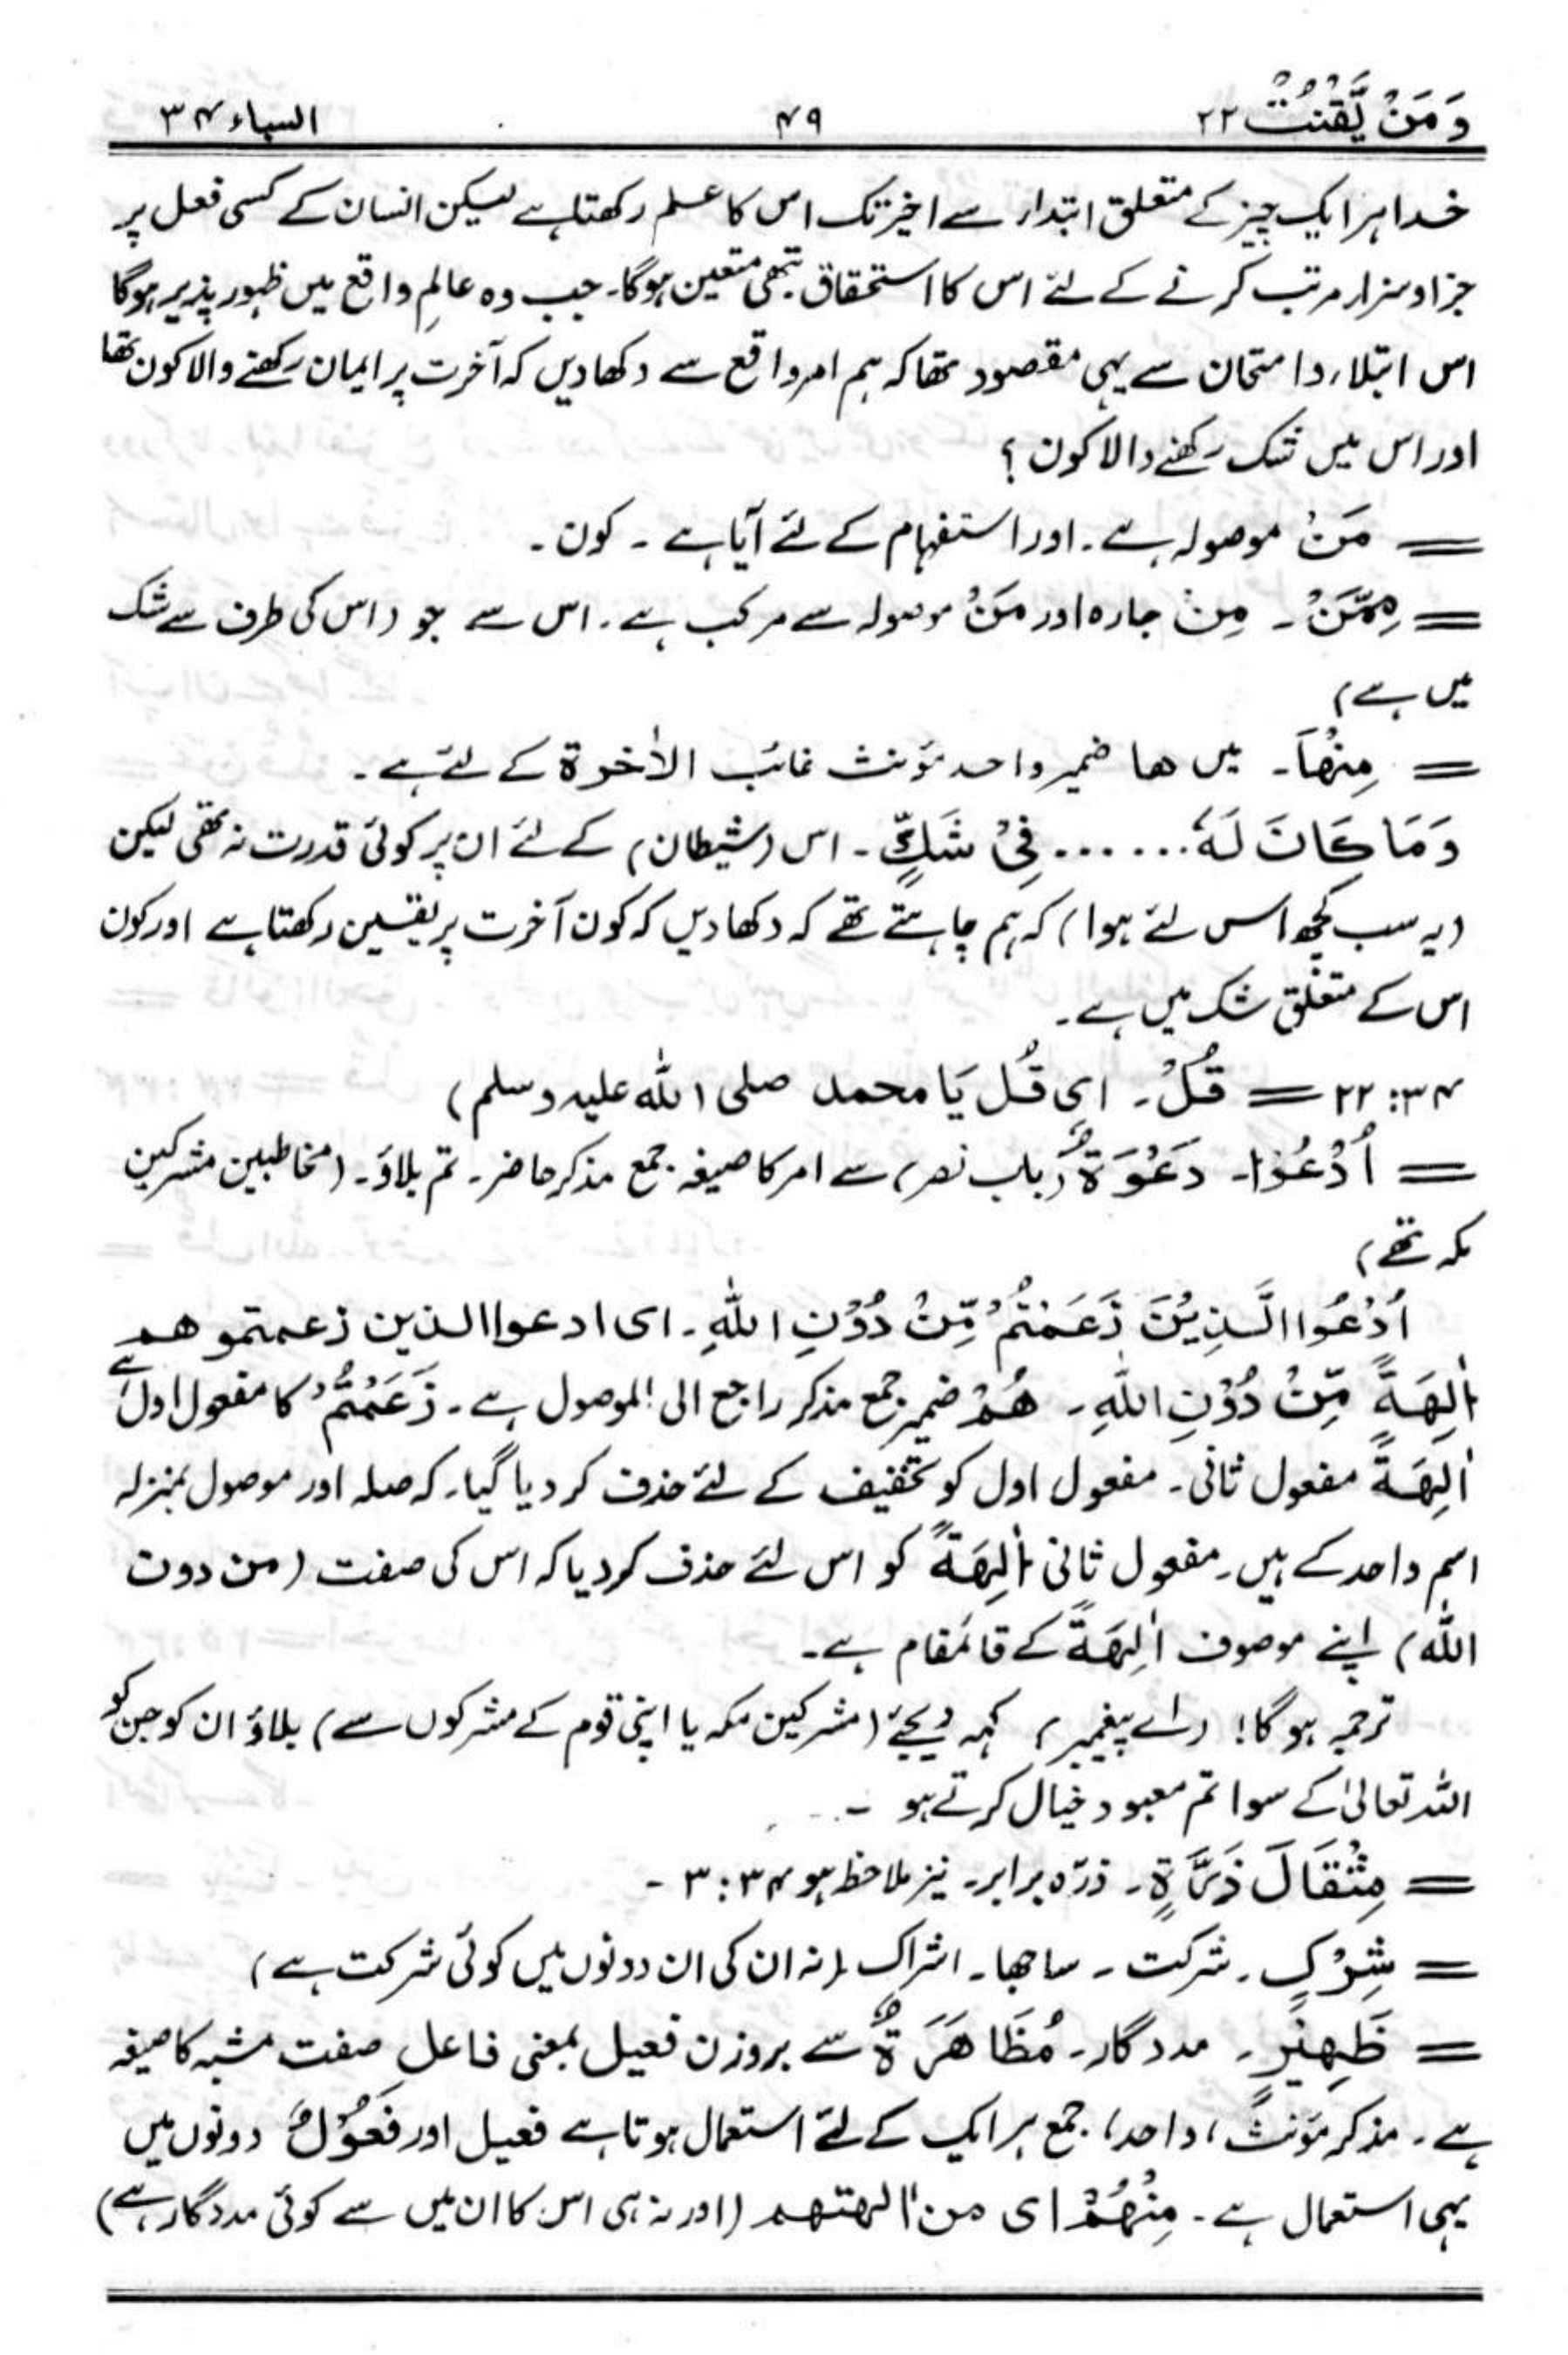 وَمَنْ يَّقْنُتْ ۲۲ ۴۹ السباء ۳۴
خدا ہر ایک چیز کے متعلق ابتداء سے اخیر تک اس کا علم رکھتا ہے لیکن انسان کے کسی فعل پر
جزا و سزاء مرتب کرنے کے لئے اس کا استحقاق تبھی متعین ہوگا۔ جب وہ عالمِ واقع میں ظہور پذیر ہوگا
اس ابتلاء و امتحان سے یہی مقصود تھا کہ ہم امر واقع سے دکھا دیں کہ آخرت پر ایمان رکھنے والا کون تھا
اور اس میں شک رکھنے والا کون ؟
= مَنْ موصولہ ہے۔ اور استفہام کے لئے آیا ہے ۔ کون ۔
= مِمَّنْ ۔ مِنْ جارہ اور مَنْ موصولہ سے مرکب ہے۔ اس سے جو (اس کی طرف سے شک
میں ہے)
= مِنْهَا۔ میں ھا ضمیر واحد مؤنث غائب الاٰخرۃ کے لئے ہے ۔
وَمَا كَانَ لَهٗ ...... فِىْ شَكٍّ ۔ اس (شیطان) کے لئے ان پر کوئی قدرت نہ تھی لیکن
(یہ سب کچھ اس لئے ہوا) کہ ہم چاہتے تھے کہ دکھا دیں کہ کون آخرت پر یقین رکھتا ہے اور کون
اس کے متعلق شک میں ہے۔
۳۴:۲۲ = قُلْ۔ ای قُل یَا محمد صلی اللہ علیہ وسلم)
= اُدْعُوْا۔ دَعْوَةٌ (باب نصر) سے امر کا صیغہ جمع مذکر حاضر۔ تم بلاؤ۔ (مخاطبین مشرکین
مکہ تھے)
اُدْعُوا الَّذِيْنَ زَعَمْتُمْ مِّنْ دُوْنِ اللّٰهِ۔ ای ادعوا الذین زعمتمو ھم
اٰلِهَةً مِّنْ دُوْنِ اللّٰهِ۔ هُمْ ضمیر جمع مذکر راجع الی الموصول ہے۔ زَعَمْتُمْ کا مفعول اول ہے
اٰلِهَةً مفعول ثانی۔ مفعول اول کو تخفیف کے لئے حذف کر دیا گیا۔ کہ صلہ اور موصول بمنزلہ
اسم واحد کے ہیں۔ مفعول ثانی اٰلِهَةً کو اس لئے حذف کر دیا کہ اس کی صفت (من دون
اللّٰه) اپنے موصوف اٰلِهَةً کے قائمقام ہے۔
ترجمہ ہو گا! (اے پیغمبر) کہہ دیجئے (مشرکین مکہ یا اپنی قوم کے مشرکوں سے) بلاؤ ان کو جن کو
اللہ تعالیٰ کے سوا تم معبود خیال کرتے ہو ۔
= مِثْقَالَ ذَرَّةٍ۔ ذرّہ برابر۔ نیز ملاحظ ہو ۳۴:۳ ۔
= شِرْكٍ۔ شرکت ۔ ساجھا۔ اشراک (نہ ان کی ان دونوں میں کوئی شرکت ہے)
= ظَهِيْرٍ۔ مددگار۔ مُظَاهَرَةٌ سے بروزن فعیل بمعنی فاعل صفت مشبہ کا صیغہ
ہے۔ مذکر مؤنث، واحد، جمع ہر ایک کے لئے استعمال ہوتا ہے فعیل اور فَعُوْلٌ دونوں میں
یہی استعمال ہے۔ مِنْهُمْ ای من اٰلهتهم (اور نہ ہی اس کا ان میں سے کوئی مددگار ہے)